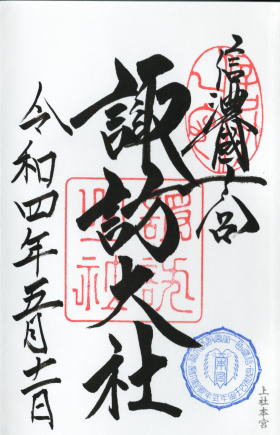 信濃國一宮
諏訪大社
令和四年五月十二日
上社本宮